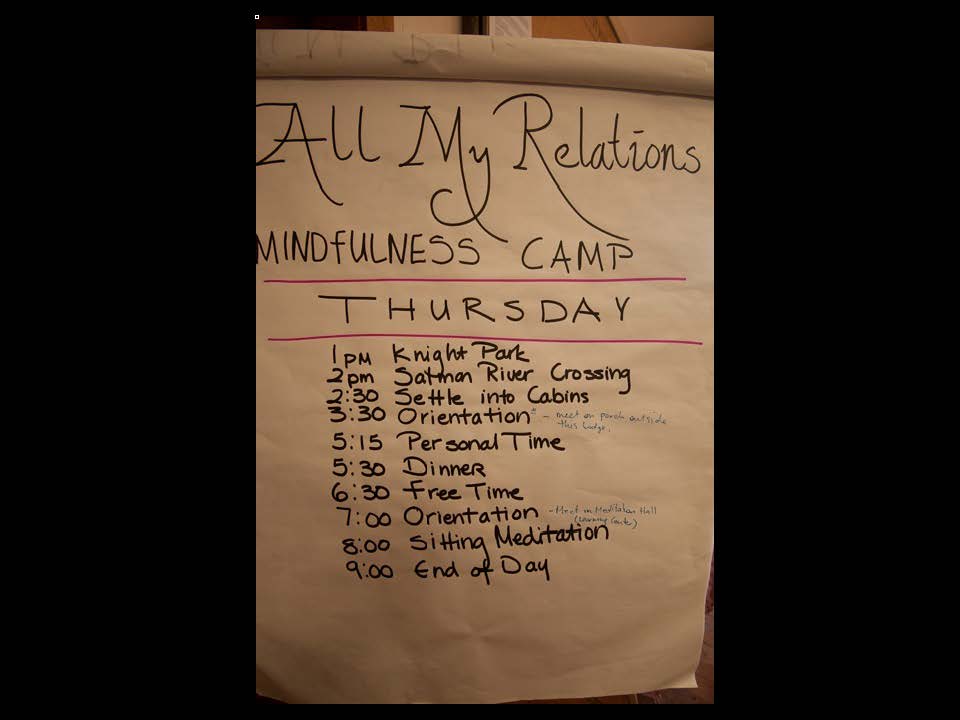 All My Relations
MINDFULNESS CAMP
THURSDAY
1pm Knight Park
2pm Salmon River Crossing
2:30 Settle into Cabins
3:30 Orientation* - meet on porch outside
this lodge.
5:15 Personal Time
5:30 Dinner
6:30 Free Time
7:00 Orientation - Meet in Meditation Hall
(Learning Center)
8:00 Sitting Meditation
9:00 End of Day